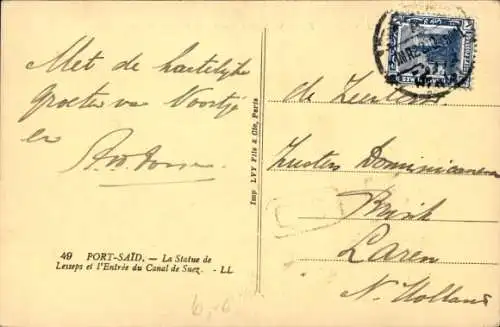 Met de hartelijke
groeten van Noortje
en
49 PORT-SAÏD. — La Statue de
Lesseps et l'Entrée du Canal de Suez. - LL
Imp LVY Fils & Cie, Paris
de Zusters
Zusters Dominicanen
Brink
Laren
N. Holland
6,-6